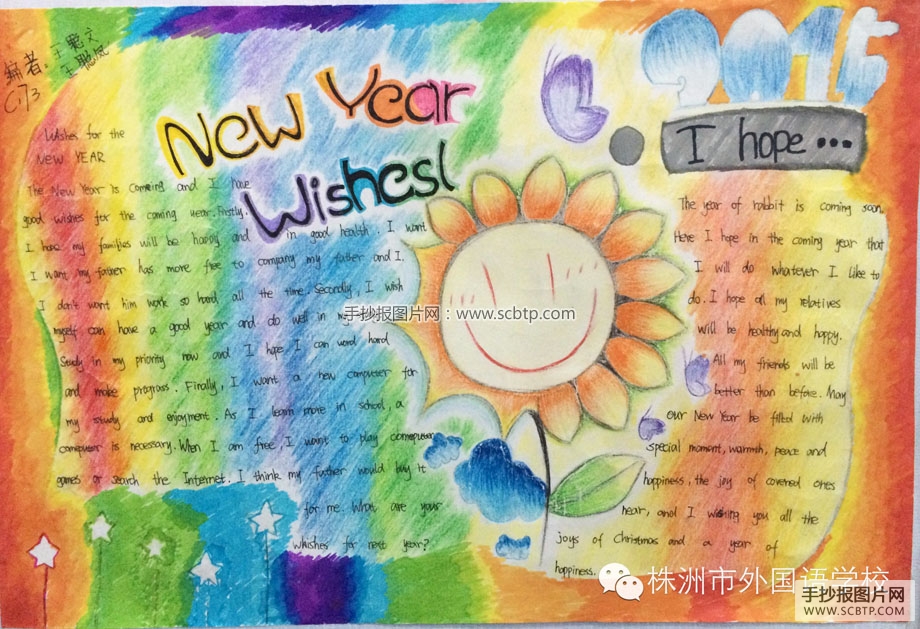 编者:王聪文
王聪凤
C173
NEW YEAR
Wishes!
2015
I hope...
Wishes for the
NEW YEAR
The New Year is coming and I have
good wishes for the coming year. Firstly,
I hope my families will be happy and in good health. I want
I want my father has more free to company my father and I.
I don't want him work so hard all the time. Secondly, I wish
myself can have a good year and do well in my
Study in my priority now and I hope I can word hard
and make prograss. Finally, I want a new computer for
my study and enjoyment. As I learn more in school, a
computer is necessary. When I am free, I want to play computer
games or search the Internet. I think my father would buy it
for me. What are your
whishes for next year?
The year of rabbit is coming soon.
Here I hope in the coming year that
I will do whatever I like to
do. I hope all my relatives
will be healthy and happy.
All my friends will be
better than before. May
our New Year be filled with
special moment, warmth, peace and
happiness, the joy of covered ones
near, and I wishing you all the
joys of Christmas and a year of
happiness.
手抄报图片网:www.scbtp.com
株洲市外国语学校
手抄报图片网
WWW.SCBTP.COM